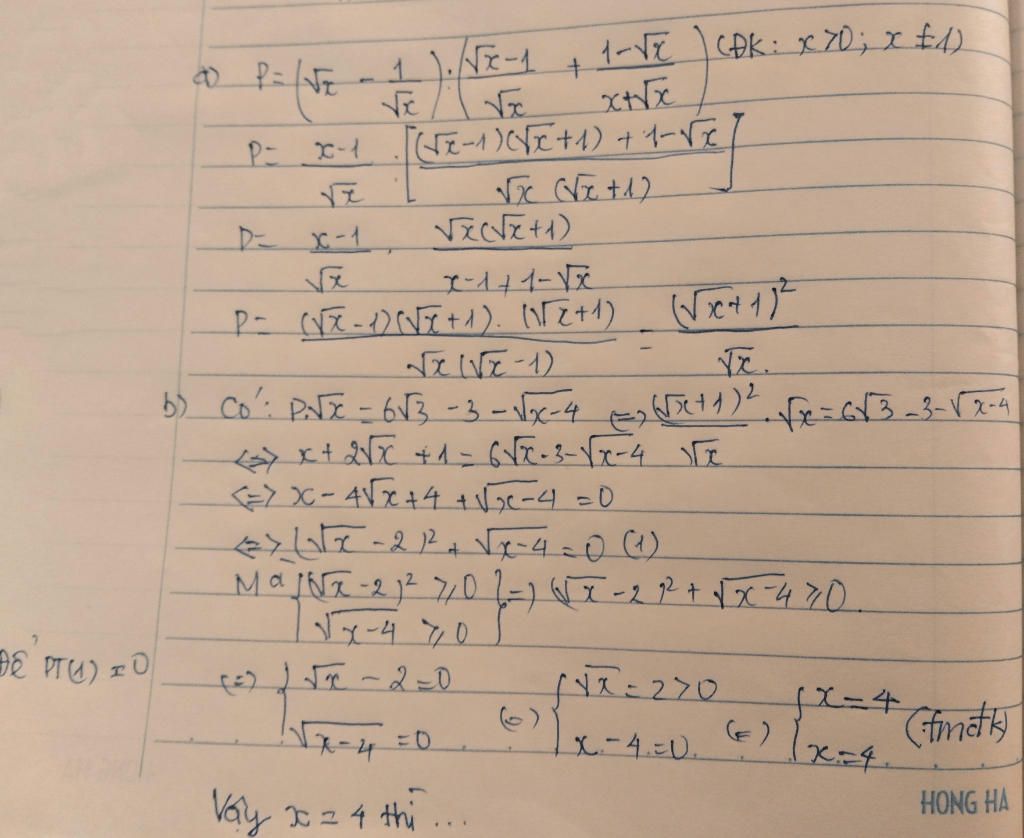 a) P = (√x - 1/√x) : (√x-1/√x + 1-√x/x+√x) (ĐK: x>0; x≠1)
P = x-1/√x : [(√x-1)(√x+1) + 1-√x / √x(√x+1)]
P = x-1/√x . √x(√x+1)/x-1+1-√x
P = (√x-1)(√x+1).(√x+1)/√x(√x-1) = (√x+1)²/√x.
b) Có: P.√x = 6√3 - 3 - √x-4 <=> (√x+1)²/√x . √x = 6√3 - 3 - √x-4
<=> x + 2√x + 1 = 6√x - 3 - √x-4
<=> x - 4√x + 4 + √x-4 = 0
<=> (√x - 2)² + √x-4 = 0 (1)
Mà {(√x - 2)² ≥ 0 } => (√x - 2)² + √x-4 ≥ 0.
√x-4 ≥ 0
ĐỂ PT(1) = 0
(=) { √x - 2 = 0 (=) { √x = 2 > 0 (=) { x = 4 (tmđk)
√x-4 = 0 x - 4 = 0. x = 4
Vậy x = 4 thì ...
HONG HA